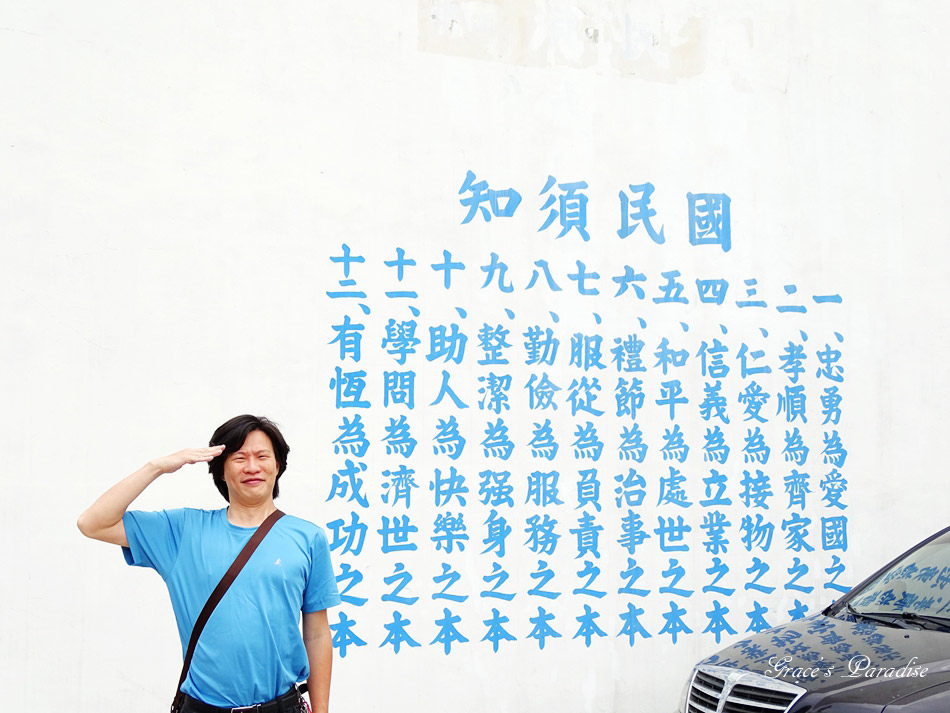 國民須知
一、忠勇為愛國之
二、孝順為齊家之本
三、仁愛為接物之本
四、信義為立業之本
五、和平為處世之本
六、禮節為治事之本
七、服從為負責之本
八、勤儉為服務之本
九、整潔為强身之本
十、助人為快樂之本
十一、學問為濟世之本
十二、有恆為成功之本
Grace's Paradise